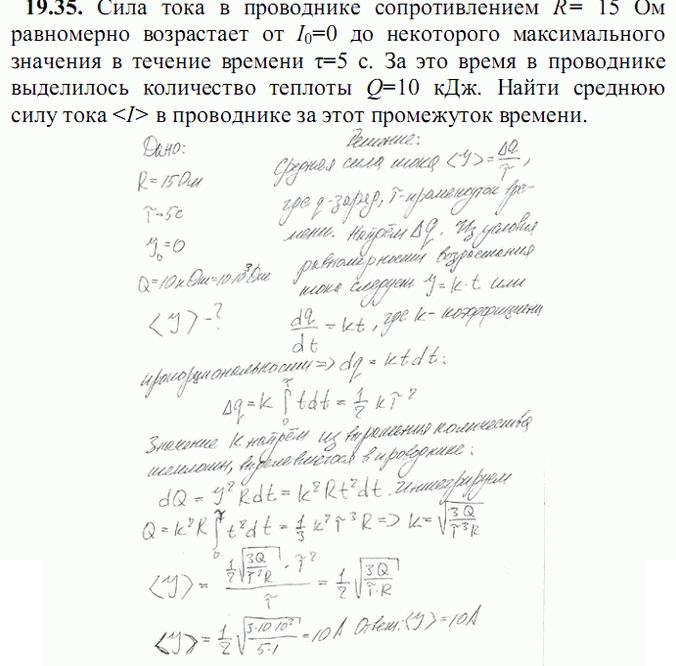 19.35. Сила тока в проводнике сопротивлением R= 15 Ом
равномерно возрастает от I₀=0 до некоторого максимального
значения в течение времени τ=5 с. За это время в проводнике
выделилось количество теплоты Q=10 кДж. Найти среднюю
силу тока <I> в проводнике за этот промежуток времени.
Дано:
R=15Ом
τ=5с
У₀=0
Q=10кДж=10·10³Дж
<У>-?
Решение:
Средняя сила тока <У>=Δq/τ,
где q-заряд, τ-промежуток вре-
мени. Найдём Δq. Из условия
равномерности возрастания
тока следует У=k·t или
dq/dt=kt, где k-коэффициент
пропорциональности=>dq=ktdt:
Δq=k∫₀^τ tdt=1/2 kτ²
Значение k найдём из выражения количества
теплоты, выделевшегося в проводнике:
dQ=У²Rdt=k²Rt²dt. Интегрируем
Q=k²R∫₀^τ t²dt=1/3 k²τ³R=>k=√(3Q/τ³R)
<У>=(1/2 √(3Q/τ³R)·τ²)/τ=1/2 √(3Q/τ·R)
<У>=1/2 √(3·10·10²/5·1)=10А Ответ:<У>=10А